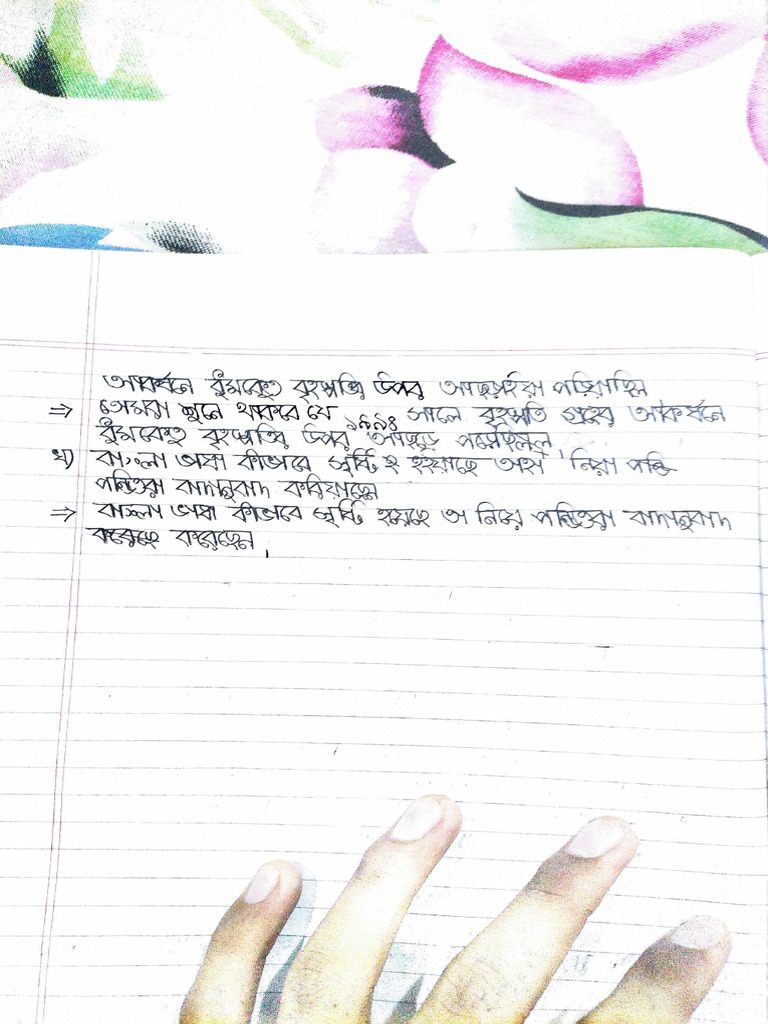 আকর্ষনে ধুমকেতু বৃহস্পতির উপর আছড়াইয়া পড়িয়াছিল
⇒ তোমরা শুনে থাকবে যে ১৯৯৪ সালে বৃহস্পতি গ্রহের আকর্ষনে
ধুমকেতু বৃহস্পতির উপর আছড়ে পড়েছিল।
খ) বাংলা ভাষা কীভাবে সৃষ্টি হইয়াছে তাহা নিয়া
পন্ডিতরা বাদানুবাদ করিয়াছেন
⇒ বাংলা ভাষা কীভাবে সৃষ্টি হয়েছে তা নিয়ে পন্ডিতরা বাদানুবাদ
করেছেন।